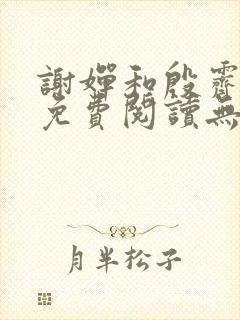 謝嬋和殷霽
免費閱讀無
月半松子